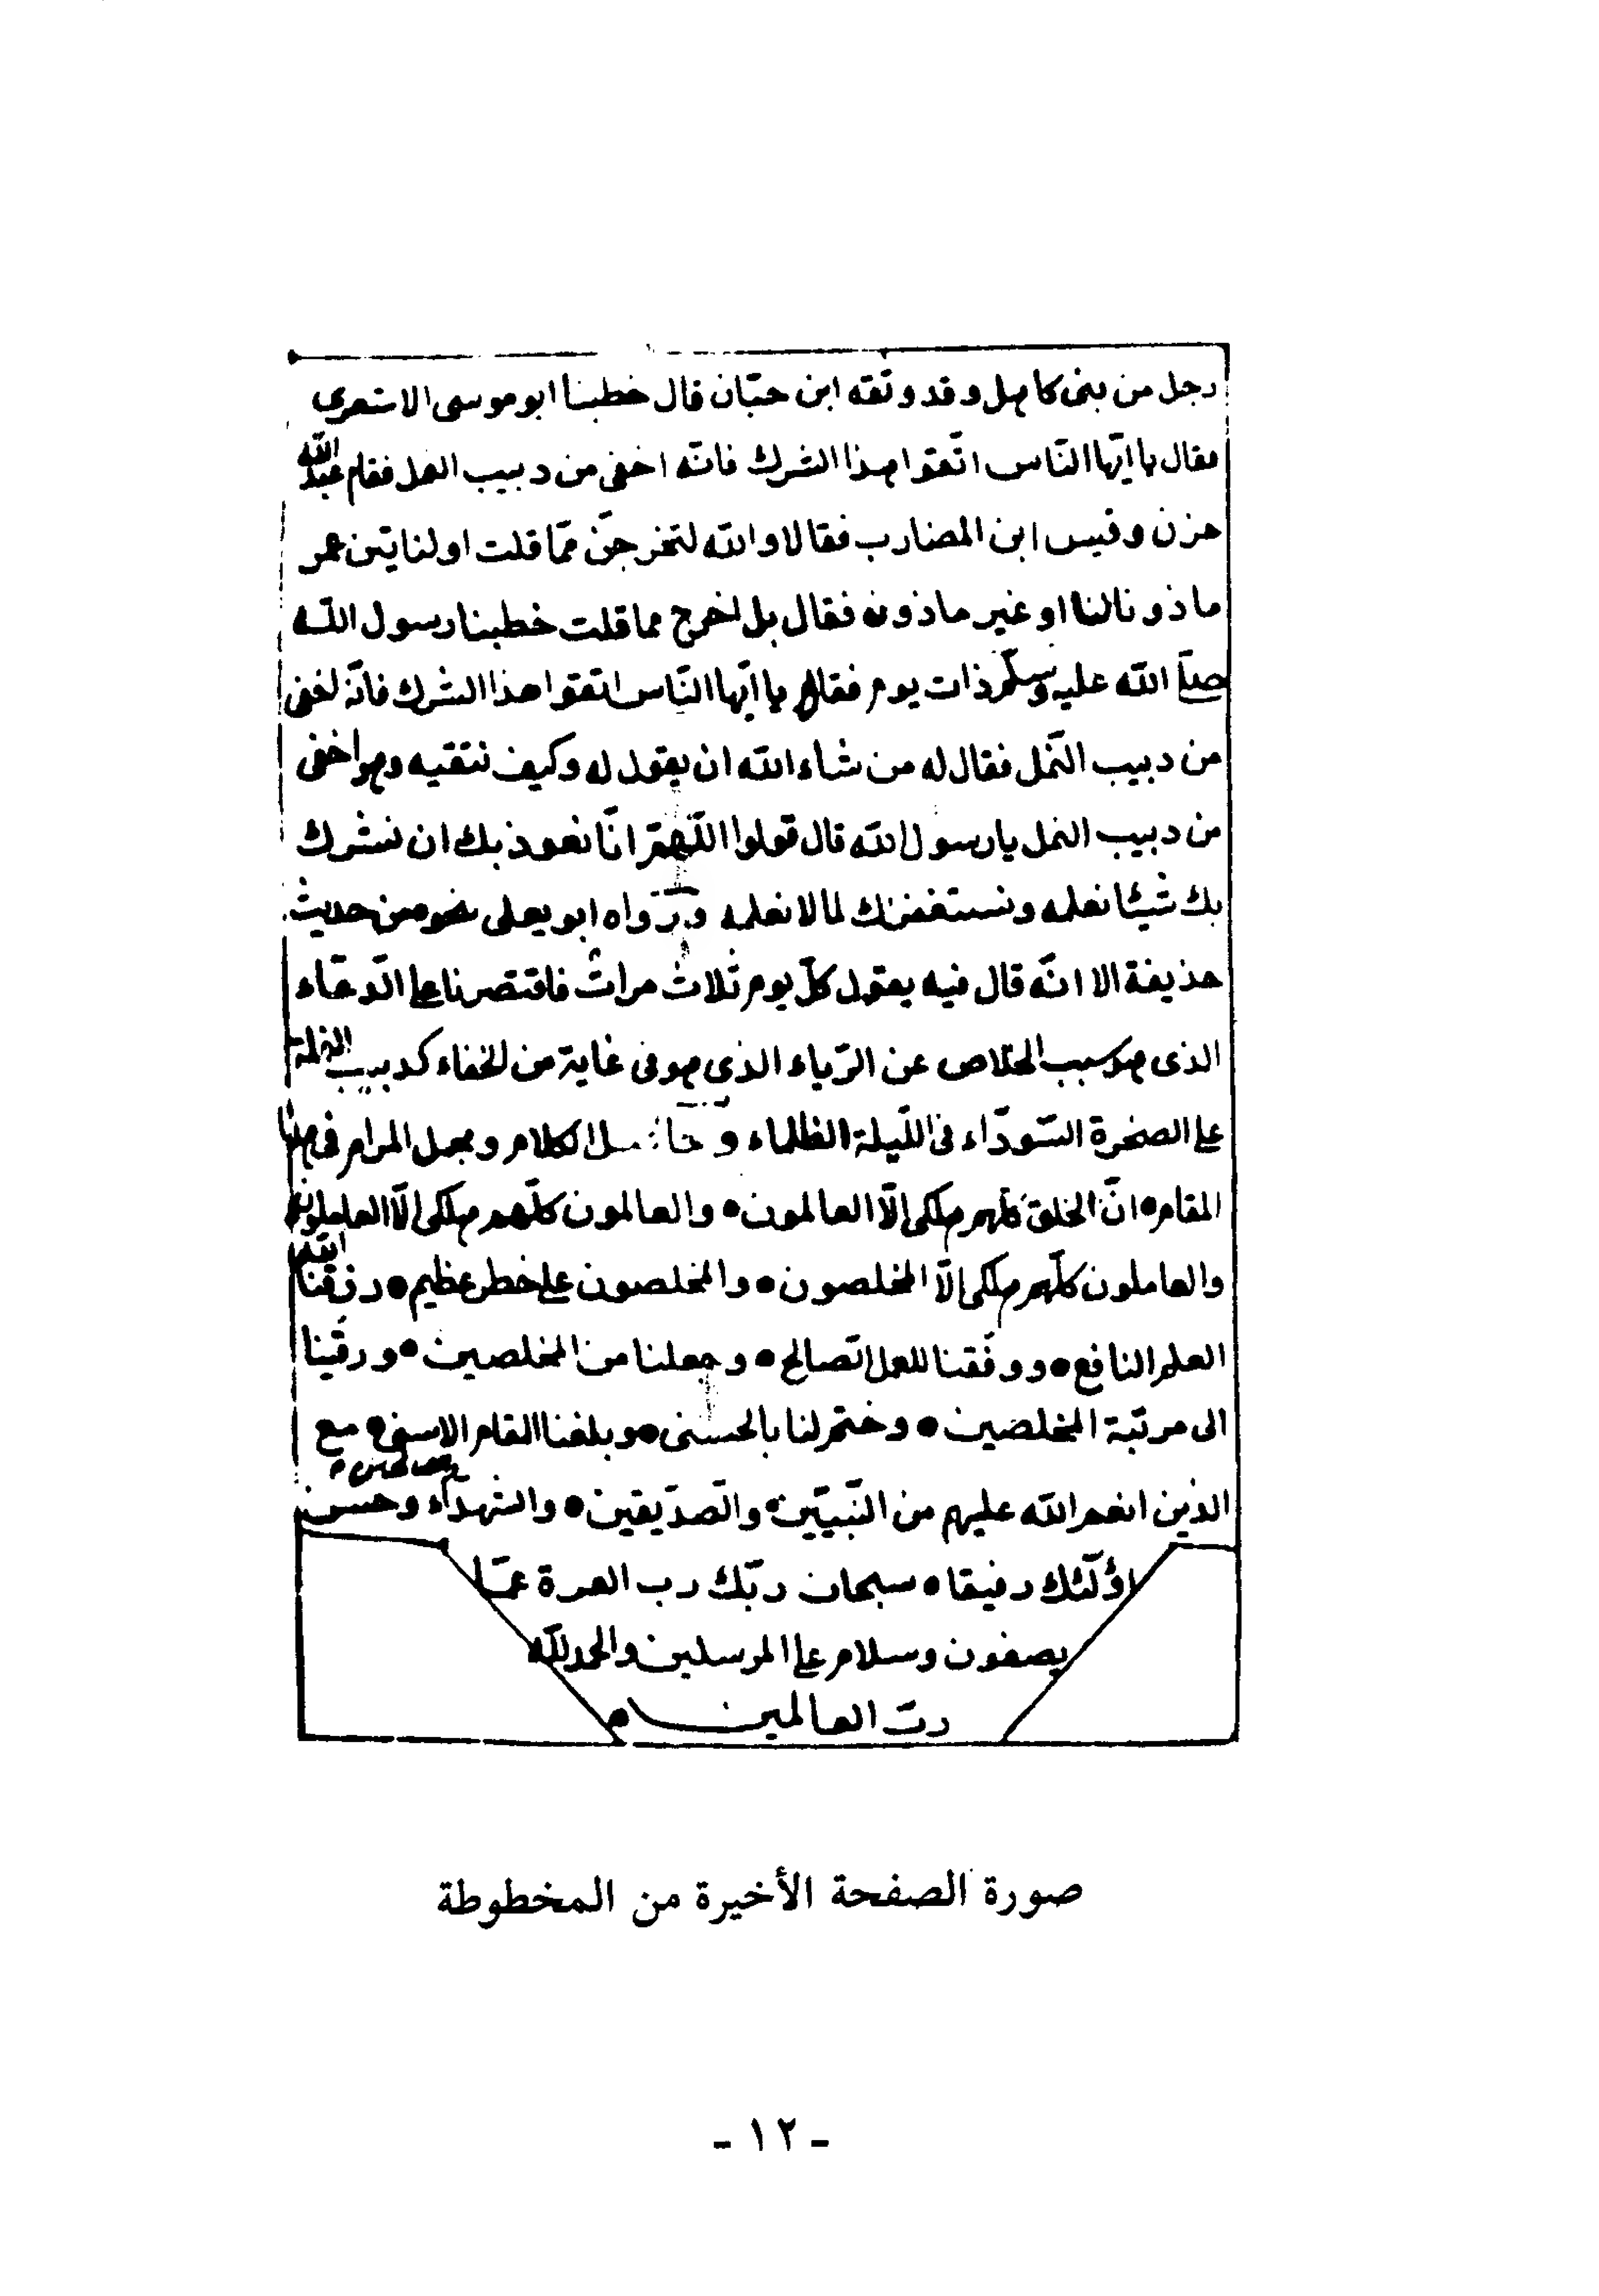 رجل من بنى كاهل وقد وثقه ابن حبّان قال خطبنا ابو موسى الاشعرى
فقال يا ايّها النّاس اتّقوا هذا الشرك فانّه اخفى من دبيب النمل فقام عبد الله
حزن وقيس ابن المضارب فقالا والله لتخرجنّ ممّا قلت او لناتين عمر
ماذونا لنا او غير ماذون فقال بل اخرج مما قلت خطبنا رسول اللّه
صلّى الله عليه وسلّم ذات يوم فقال يا ايّها النّاس اتقوا هذا الشرك فانّه اخفى
من دبيب النّمل فقال له من شاء الله ان يقول له وكيف نتقيه وهو اخفى
من دبيب النمل يا رسول الله قال قولوا اللّهمّ انّا نعوذ بك ان نشرك
بك شيئا نعلمه ونستغفرك لما لا نعلمه ورواه ابو يعلى بنحوه من حديث
حذيفة الا انّه قال فيه يقول كلّ يوم ثلاث مرات فاقتصرنا على الدّعاء
الذى هو سبب الخلاص عن الرّياء الذى هو فى غاية من الخفاء كدبيب النملة
على الصخرة السّودّاء فى اللّيلة الظلماء و الكلام ومجمل المرام فى هذا
المقام • انّ الخلق كلّهم هلكى الّا العالمون • والعالمون كلّهم هلكى الّا العاملون
والعاملون كلّهم هلكى الّا المخلصون • والمخلصون على خطر عظيم • رزقنا الله
العلم النافع • ووفّقنا للعمل الصّالح • وجعلنا من المخلصين • ورقّينا
الى مرتبة المخلصين • وختم لنا بالحسنى • وبلغنا المقام الاسنى • مع
الذين انعم الله عليهم من النّبيّين • والصّدّيقين • والشهدّاء والصالحين • وحسن
اولّئك رفيقا • سبحان ربّك رب العزة عمّا
يصفون وسلام على المرسلين والحمد للّه
ربّ العالمين م
صورة الصفحة الأخيرة من المخطوطة
- ١٢ -